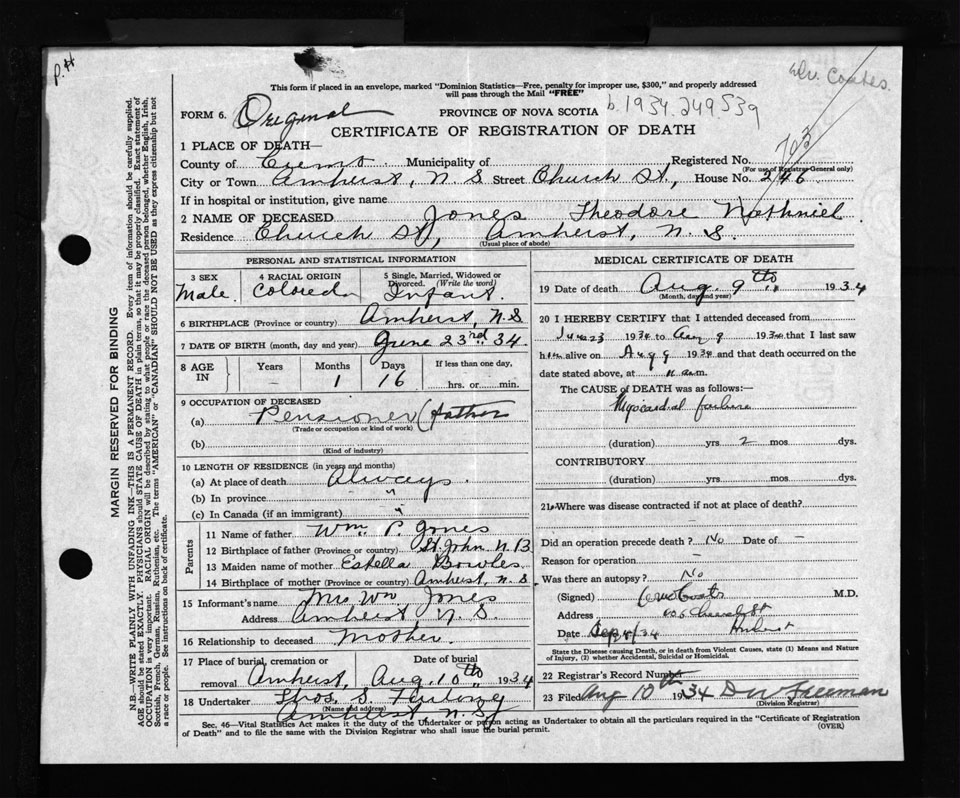 P.H
Dr. Coates.
This form if placed in an envelope, marked "Dominion Statistics—Free, penalty for improper use, $300," and properly addressed
will pass through the Mail "FREE"
FORM 6. Original
PROVINCE OF NOVA SCOTIA b.1934.249539
CERTIFICATE OF REGISTRATION OF DEATH
703
1 PLACE OF DEATH—
County of Municipality of Registered No.
(For use of Registrar General only)
City or Town Amherst, N.S Street Church St., House No. 246
If in hospital or institution, give name
2 NAME OF DECEASED Jones Theodore Nathniel
Residence Church St., Amherst, N.S.
(Usual place of abode)
PERSONAL AND STATISTICAL INFORMATION
3 SEX Male
4 RACIAL ORIGIN Colored
5 Single, Married, Widowed or
Divorced. (Write the word)
Infant.
6 BIRTHPLACE (Province or country) Amherst, N.S
7 DATE OF BIRTH (month, day and year) June 23rd 34
8 AGE IN Years – Months 1 Days 16 If less than one day, hrs. or min.
9 OCCUPATION OF DECEASED
(a) Pensioner (Father
(Trade or occupation or kind of work)
(b)
(Kind of industry)
10 LENGTH OF RESIDENCE (in years and months)
(a) At place of death Always.
(b) In province "
(c) In Canada (if an immigrant) "
Parents
11 Name of father Wm. P. Jones
12 Birthplace of father (Province or country) St. John N.B.
13 Maiden name of mother Estella Bowles
14 Birthplace of mother (Province or country) Amherst, N.S.
15 Informant's name Mrs Wm Jones
Address Amherst N.S.
16 Relationship to deceased Mother.
17 Place of burial, cremation or Date of burial
removal Amherst, Aug. 10th 1934
18 Undertaker Thos. S. Furlong
Amherst N.S.
MEDICAL CERTIFICATE OF DEATH
19 Date of death Aug. 9th 1934
(Month, day and year)
20 I HEREBY CERTIFY that I attended deceased from
June 23 1934 to Aug 9 1934 that I last saw
him alive on Aug 9 1934 and that death occurred on the
date stated above, at 11 a.m.
The CAUSE OF DEATH was as follows:—
Myocardial failure
(duration) yrs 2 mos dys.
CONTRIBUTORY
(duration) yrs. mos. dys.
21. Where was disease contracted if not at place of death?
–
Did an operation precede death? No Date of –
Reason for operation –
Was there an autopsy? No
(Signed) M.D.
Address Church St
Date Sep 4/34 Amherst
State the Disease causing Death, or in death from Violent Causes, state (1) Means and Nature
of Injury, (2) whether Accidental, Suicidal or Homicidal.
22 Registrar's Record Number
23 Filed Aug 10th 1934 D W Freeman
(Division Registrar)
Sec. 46—Vital Statistics Act makes it the duty of the Undertaker or person acting as Undertaker to obtain all the particulars required in the "Certificate of Registration
of Death" and to file the same with the Division Registrar who shall issue the burial permit.
(OVER)
MARGIN RESERVED FOR BINDING
N.B.—WRITE PLAINLY WITH UNFADING INK—THIS IS A PERMANENT RECORD. Every item of information should be carefully supplied.
AGE should be stated EXACTLY. PHYSICIANS should STATE CAUSE OF DEATH in plain terms, so that it may be properly classified. Exact statement of
OCCUPATION is very important. RACIAL ORIGIN will be described by stating to what people or race the deceased person belonged, whether English, Irish,
Scottish, French, German, Russian, Ruthenian, etc. The terms "AMERICAN" or "CANADIAN" SHOULD NOT BE USED as they express citizenship but not
a race or people. See instructions on back of certificate.